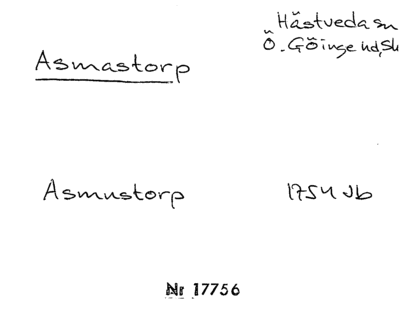 Hästveda sn
Asmastorp
Ö. Göinge hd, Sk
Asmustorp 1754 Jb
Nr 17756